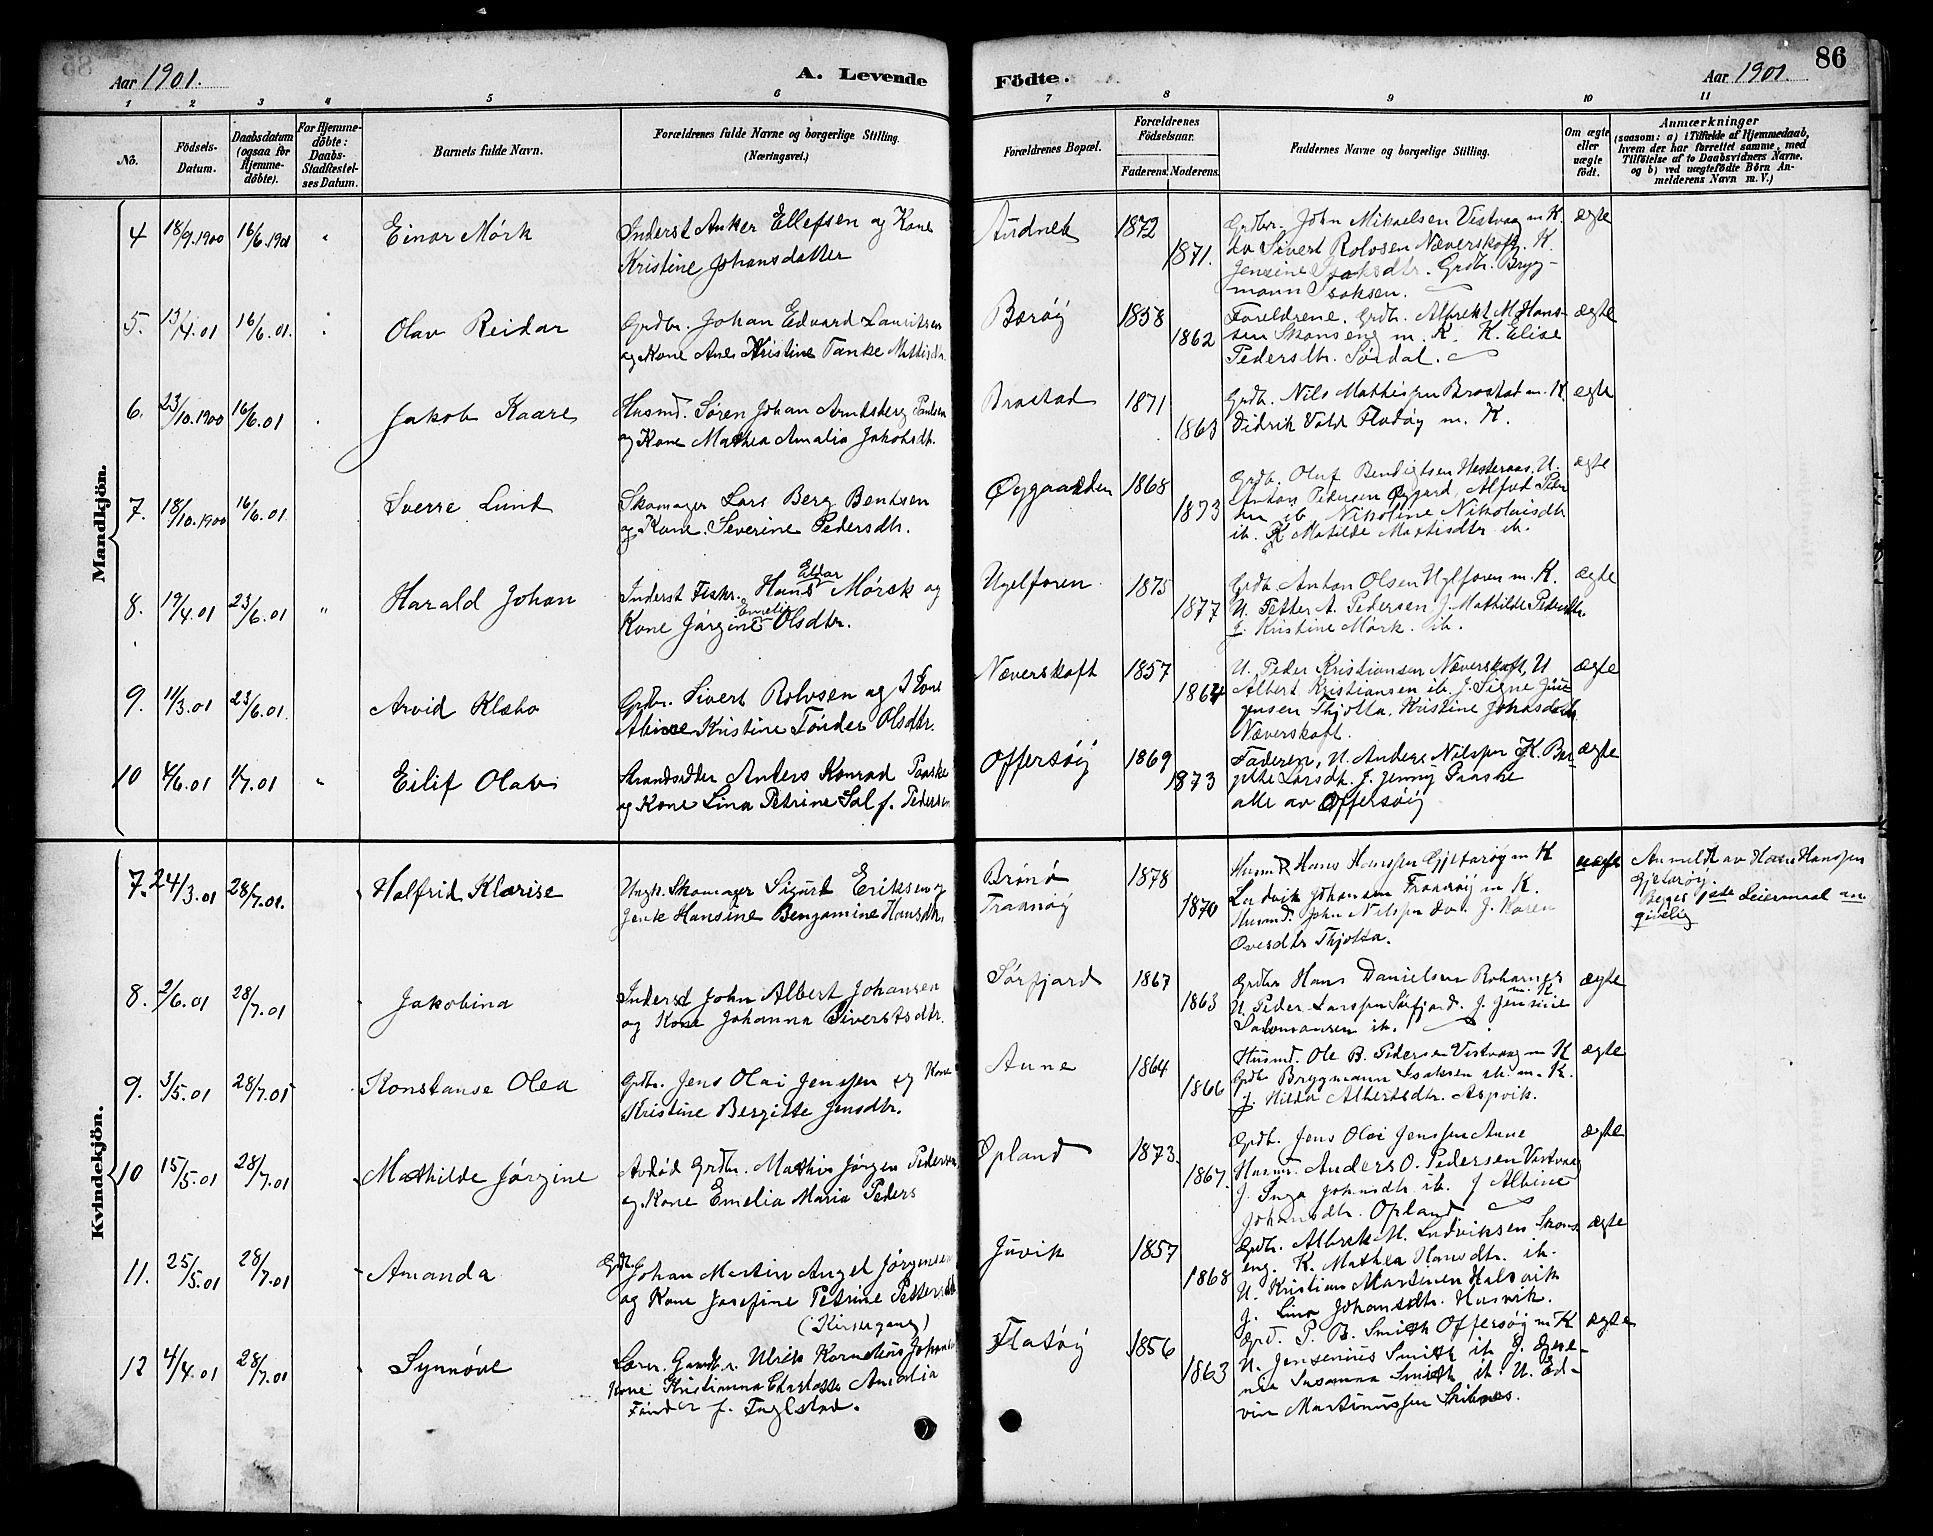 Aar 1901.
A. Levende
Födte.
Aar 1901
86
1 2 3 4 5 6
7 8 9 10 11
No.
Födsels-Datum.
Daabsdatum (ogsaa for Hjemme-döbte).
For Hjemme-döbte: Daabs-Stadfestel-ses Datum.
Barnets fulde Navn.
Forældrenes fulde Navne og borgerlige Stilling.
(Næringsvei.)
Forældrenes Bopæl.
Forældrenes Födselsaar.
Faderens. Moderens.
Faddernes Navne og borgerlige Stilling.
Om ægte eller uægte födt.
Anmærkninger
(saasom: a) i Tilfælde af Hjemmedaab,
hvem der har forrettet samme, med
Tilföielse af to Daabsvidners Navne,
og b) ved uægtefödte Börn An-
melderens Navn m. V.)
Mandkjön.
4 18/9.1900 16/6.1901 Einar Mörk
Inderst Anker Ellefsen og Kone
Kristine Johansdatter
Audnek 1872 1871.
Grdbr. John Mikaelsen Vestvaag m K
do Sivert Rolvsen Næverskoft, K.
Jensine Isaksdtr. Grdbr. Bryg-
mann Isaksen.
ægte
5. 13/4.01 16/6.01. Olav Reidar
Grdbr. Johan Edvard Lauritsen
og Kone Ane Kristine Tanke Mattisdtr.
Barøy 1858 1862
Foreldrene, Grdbr. Albrekt M. Hans-
sen Skonseng m. K. K. Elise
Pedersdtr. Sørdal.
ægte
6. 23/10.1900 16/6.01 Jakob Kaare
Husmd. Søren Johan Arntsberg Paulsen
og Kone Mathea Amalia Jakobsdtr.
Brastad 1871 1863
Grdb. Nils Mathispen Brastad m. K.
Didrik Vold Flatøy m. K.
ægte
7. 18/10.1900 16/6.01 Sverre Lund
Skomager Lars Berg Bentsen
og Kone Severine Pedersdtr.
Øygaarden 1868 1873
Grdb. Oluf Bendigtsen Hesteraas, U.
Anton Pedersen Øygard, Alfred Peder
sen ib Nikoline Nikolaisdtr
ib. K Matilde Martisdtr ib.
ægte
8. 19/4.01 23/6.01 " Harald Johan
Inderst Fiskr. Hans Eldar Mørsk og
Kone Jørgine Emelie Olsdtr.
Ugelforen 1875 1877
Grdb. Anton Olsen Uglforen m. K.
U. Petter A. Pedersen J. Mathilde Pedersdtr.
J. Kristine Mørk. ib.
ægte
9. 11/3.01 23/6.01. Arvid Klæbo
Grdbr. Sivert Rolvsen og Kone
Abine Kristine Tønder Olsdtr.
Næverskoft 1857 1864
U. Peder Kristiansen Næverskoft, U
Albert Kristiansen ib. J. Signe Jør
gensen Thjotta. Kristine Johasdatr
Næverskoft.
ægte
10 4/6.01 4/7.01 " Eilif Olav
Strandsidder Anders Konrad Paaske
og Kone Lina Petrine Sal f. Pedersen
Offersøiy 1869 1873
Faderen, U. Anders Nilspen K. Ber-
gitte Larsdtr. J. Jenny Paaske
alle av Offersøiy
ægte
Kvindekjön.
7. 24/3.01 28/7.01. Halfrid Klarise
Ungk. Skomager Sigurd Eriksen og
Jente Hansine Bengamine Hansdtr.
Brønø
Tranøy 1878 1870
Husmd Hans Hanspen Gjeterøy m K
Ludvik Johansen Tranøy m K.
Husmd. John Nilspen do. J. Karen
Oversdtr Thjotta.
uægte
Anmeldt av Hans Hanspen
Gjeterøy.
Beges 1ste Leiermaal an-
givelig
8. 2/6.01 28/7.01 Jakobina
Inderst John Albert Johansen
og Kone Johanna Siverstsdtr.
Sørfjord 1867 1863
Grdbr Hans Danielsen Roharnes m. K
U. Peder Larspen Sørfjord. J. Jensine
Salomonsen ib.
ægte
9. 3/5.01 28/7.01 Konstanse Olea
Grdbr. Jens Olai Jenspen og Kone
Kristine Bergitte Jensdtr.
Aune 1864 1866
Husmd. Ole B. Pedersen Vestvaag m K
Grdb Brygmann Isaksen ib. m. K.
J. Hilda Albertsdtr. Aspvik.
ægte
10 15/5.01 28/7.01 Mathilde Jørgine
Avdød Grdbr. Mathis Jørgen Pedersen
og Kone Emelia Maria Peders
Opland 1873. 1867.
Grdb. Jens Olai Jenspen Aune
Husmd. Anders O. Pedersen Vestvaag
J. Inga Johansdtr. ib. J Albine
Johansdtr. Opland
ægte
11. 25/5.01 28/7.01 Amanda
Grdb. Johan Martin Angel Jørgensen
og Kone Josefine Petrine Pettersdtr
Juvik 1857 1868
Grdb. Albrek M. Ludviksen Skons
eng. K. Mathea Hansdtr. ib.
U. Kristian Martinen Halsvik
J. Lina Johansdtr. Husvik.
ægte
12 4/4.01 28/7.01 Synnøve
(Kirkegang)
Lærer Gaardbr. Ulrik Kornelius Johan
Kone Kristianna Charlotte Amalia
Tønder f. Fuglstad.
Flatøy 1856 1863
Grd. P. B. Smith Offersøy m K
U. Jensenius Smith ib J.
Susanna Smith ib. U. Ed-
vin Martinuspen
ægte